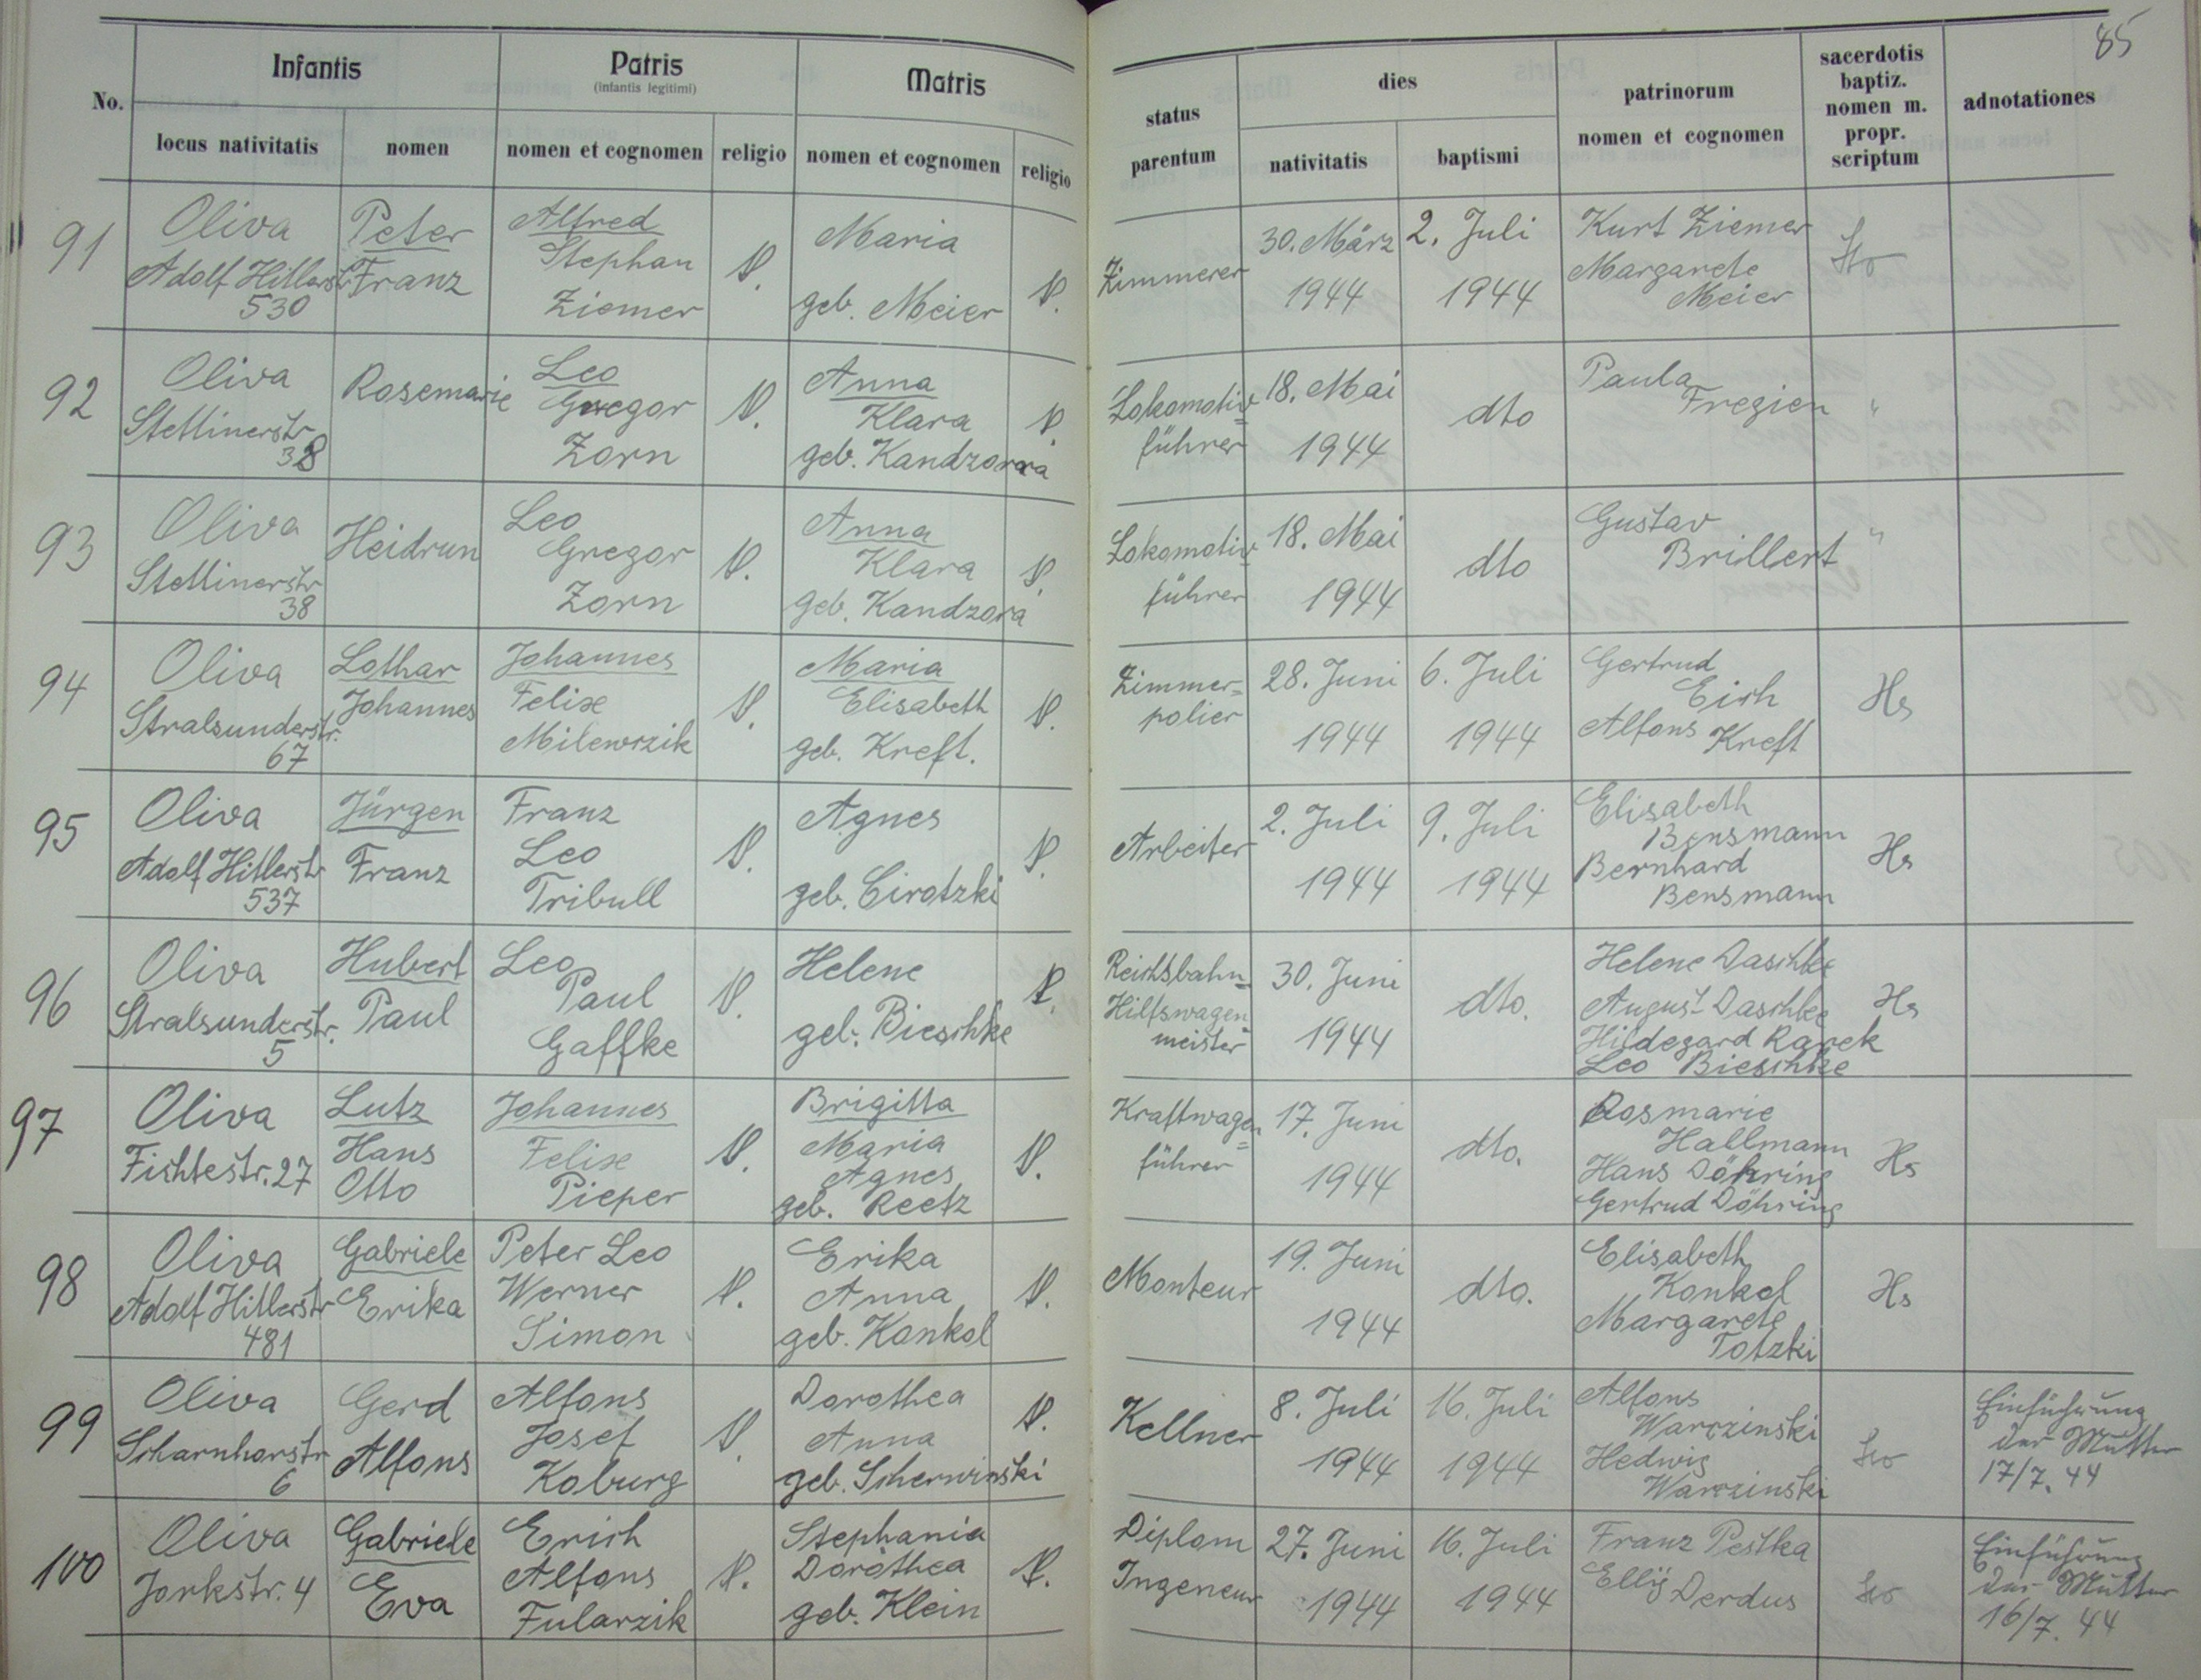 85
Infantis
Patris
(infantis legitimi)
Matris
status parentum
dies
patrinorum
nomen et cognomen
sacerdotis
baptiz.
nomen m.
propr.
scriptum
adnotationes
No.
locus nativitatis
nomen
nomen et cognomen
religio
nomen et cognomen
religio
nativitatis
baptismi
91
Oliva
Adolf Hitlerstr
530
Peter
Franz
Alfred
Stephan
Ziemer
Maria
geb. Meier
Zimmerer
30. März
1944
2. Juli
1944
Kurt Ziemer
Margarete
Meier
92
Oliva
Stettinerstr
38
Rosemarie
Leo
Gregor
Zorn
Anna
Klara
geb. Kandzora
Lokomotiv=
führer
18. Mai
1944
dto
Paula
Fregien
"
93
Oliva
Stettinerstr
38
Heidrun
Leo
Gregor
Zorn
Anna
Klara
geb. Kandzora
Lokomotiv=
führer
18. Mai
1944
dto
Gustav
Brillert
"
94
Oliva
Stralsunderstr.
67
Lothar
Johannes
Johannes
Felix
Milewrzik
Maria
Elisabeth
geb. Kreft.
Zimmer=
polier
28. Juni
1944
6. Juli
1944
Gertrud
Eich
Alfons Kreft
Hs
95
Oliva
Adolf Hitlerstr
537
Jürgen
Franz
Franz
Leo
Tribull
Agnes
geb. Cirotzki
Arbeiter
2. Juli
1944
9. Juli
1944
Elisabeth
Bensmann
Bernhard
Bensmann
Hs
96
Oliva
Stralsunderstr.
5
Hubert
Paul
Leo
Paul
Gaffke
Helene
geb. Bieschke
Reichsbahn=
Hilfswagen=
meister
30. Juni
1944
dto.
Helene Daschke
August Daschke
Hildegard
Leo Bieschke
Hs
97
Oliva
Fichtestr. 27
Lutz
Hans
Otto
Johannes
Felix
Pieper
Brigitta
Maria
Agnes
geb. Reetz
Kraftwagen=
führer
17. Juni
1944
dto.
Rosmarie
Hallmann
Hans Döhring
Gertrud Döhring
Hs
98
Oliva
Adolf Hitlerstr
481
Gabriele
Erika
Peter Leo
Werner
Simon
Erika
Anna
geb. Konkol
Monteur
19. Juni
1944
dto.
Elisabeth
Konkol
Margarete
Totzki
Hs
99
Oliva
Scharnhorstr
6
Gerd
Alfons
Alfons
Josef
Koburg
Dorothea
Anna
geb. Scherwinski
Kellner
8. Juli
1944
16. Juli
1944
Alfons
Warczinski
Hedwig
Warczinski
Einführung
der Mutter
17/7. 44
100
Oliva
Jorkstr. 4
Gabriele
Eva
Erich
Alfons
Fularzik
Stephania
Dorothea
geb. Klein
Diplom
Ingeneur
27. Juni
1944
16. Juli
1944
Franz Pestka
Derdus
Einführung
der Mutter
16/7. 44